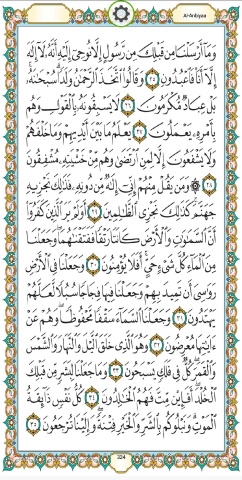 Al-Anbiyaa
وَمَآ أَرْسَلْنَا مِن قَبْلِكَ مِن رَّسُولٍ إِلَّا نُوحِىٓ إِلَيْهِ أَنَّهُۥ لَآ إِلَٰهَ
إِلَّآ أَنَا۠ فَٱعْبُدُونِ ٢٥ وَقَالُوا۟ ٱتَّخَذَ ٱلرَّحْمَٰنُ وَلَدًا ۗ سُبْحَٰنَهُۥ ۚ
بَلْ عِبَادٌ مُّكْرَمُونَ ٢٦ لَا يَسْبِقُونَهُۥ بِٱلْقَوْلِ وَهُم
بِأَمْرِهِۦ يَعْمَلُونَ ٢٧ يَعْلَمُ مَا بَيْنَ أَيْدِيهِمْ وَمَا خَلْفَهُمْ
وَلَا يَشْفَعُونَ إِلَّا لِمَنِ ٱرْتَضَىٰ وَهُم مِّنْ خَشْيَتِهِۦ مُشْفِقُونَ
٢٨ ۞ وَمَن يَقُلْ مِنْهُمْ إِنِّىٓ إِلَٰهٌ مِّن دُونِهِۦ فَذَٰلِكَ نَجْزِيهِ
جَهَنَّمَ ۚ كَذَٰلِكَ نَجْزِى ٱلظَّٰلِمِينَ ٢٩ أَوَلَمْ يَرَ ٱلَّذِينَ كَفَرُوٓا۟
أَنَّ ٱلسَّمَٰوَٰتِ وَٱلْأَرْضَ كَانَتَا رَتْقًا فَفَتَقْنَٰهُمَا ۖ وَجَعَلْنَا
مِنَ ٱلْمَآءِ كُلَّ شَىْءٍ حَىٍّ ۖ أَفَلَا يُؤْمِنُونَ ٣٠ وَجَعَلْنَا فِى ٱلْأَرْضِ
رَوَٰسِىَ أَن تَمِيدَ بِهِمْ وَجَعَلْنَا فِيهَا فِجَاجًا سُبُلًا لَّعَلَّهُمْ
يَهْتَدُونَ ٣١ وَجَعَلْنَا ٱلسَّمَآءَ سَقْفًا مَّحْفُوظًا ۖ وَهُمْ عَنْ
ءَايَٰتِهَا مُعْرِضُونَ ٣٢ وَهُوَ ٱلَّذِى خَلَقَ ٱلَّيْلَ وَٱلنَّهَارَ وَٱلشَّمْسَ
وَٱلْقَمَرَ ۖ كُلٌّ فِى فَلَكٍ يَسْبَحُونَ ٣٣ وَمَا جَعَلْنَا لِبَشَرٍ مِّن قَبْلِكَ
ٱلْخُلْدَ ۖ أَفَإِي۟ن مِّتَّ فَهُمُ ٱلْخَٰلِدُونَ ٣٤ كُلُّ نَفْسٍ ذَآئِقَةُ
ٱلْمَوْتِ ۗ وَنَبْلُوكُم بِٱلشَّرِّ وَٱلْخَيْرِ فِتْنَةً ۖ وَإِلَيْنَا تُرْجَعُونَ ٣٥
324